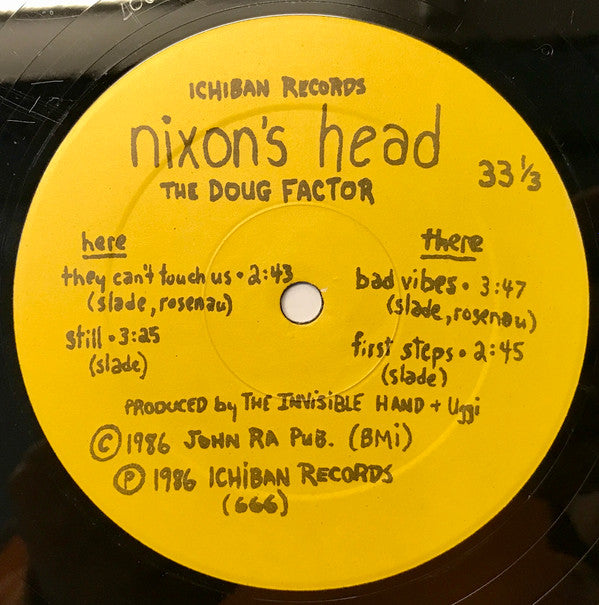 ICHIBAN RECORDS
nixon's head
THE DOUG FACTOR
33 1/3
here
they can't touch us • 2:43
(slade, rosenau)
still • 3:25
(slade)
there
bad vibes • 3:47
(slade, rosenau)
first steps • 2:45
(slade)
PRODUCED by THE INVISIBLE HAND + Uggi
© 1986 JOHN RA PUB. (BMi)
℗ 1986 ICHIBAN RECORDS
(666)